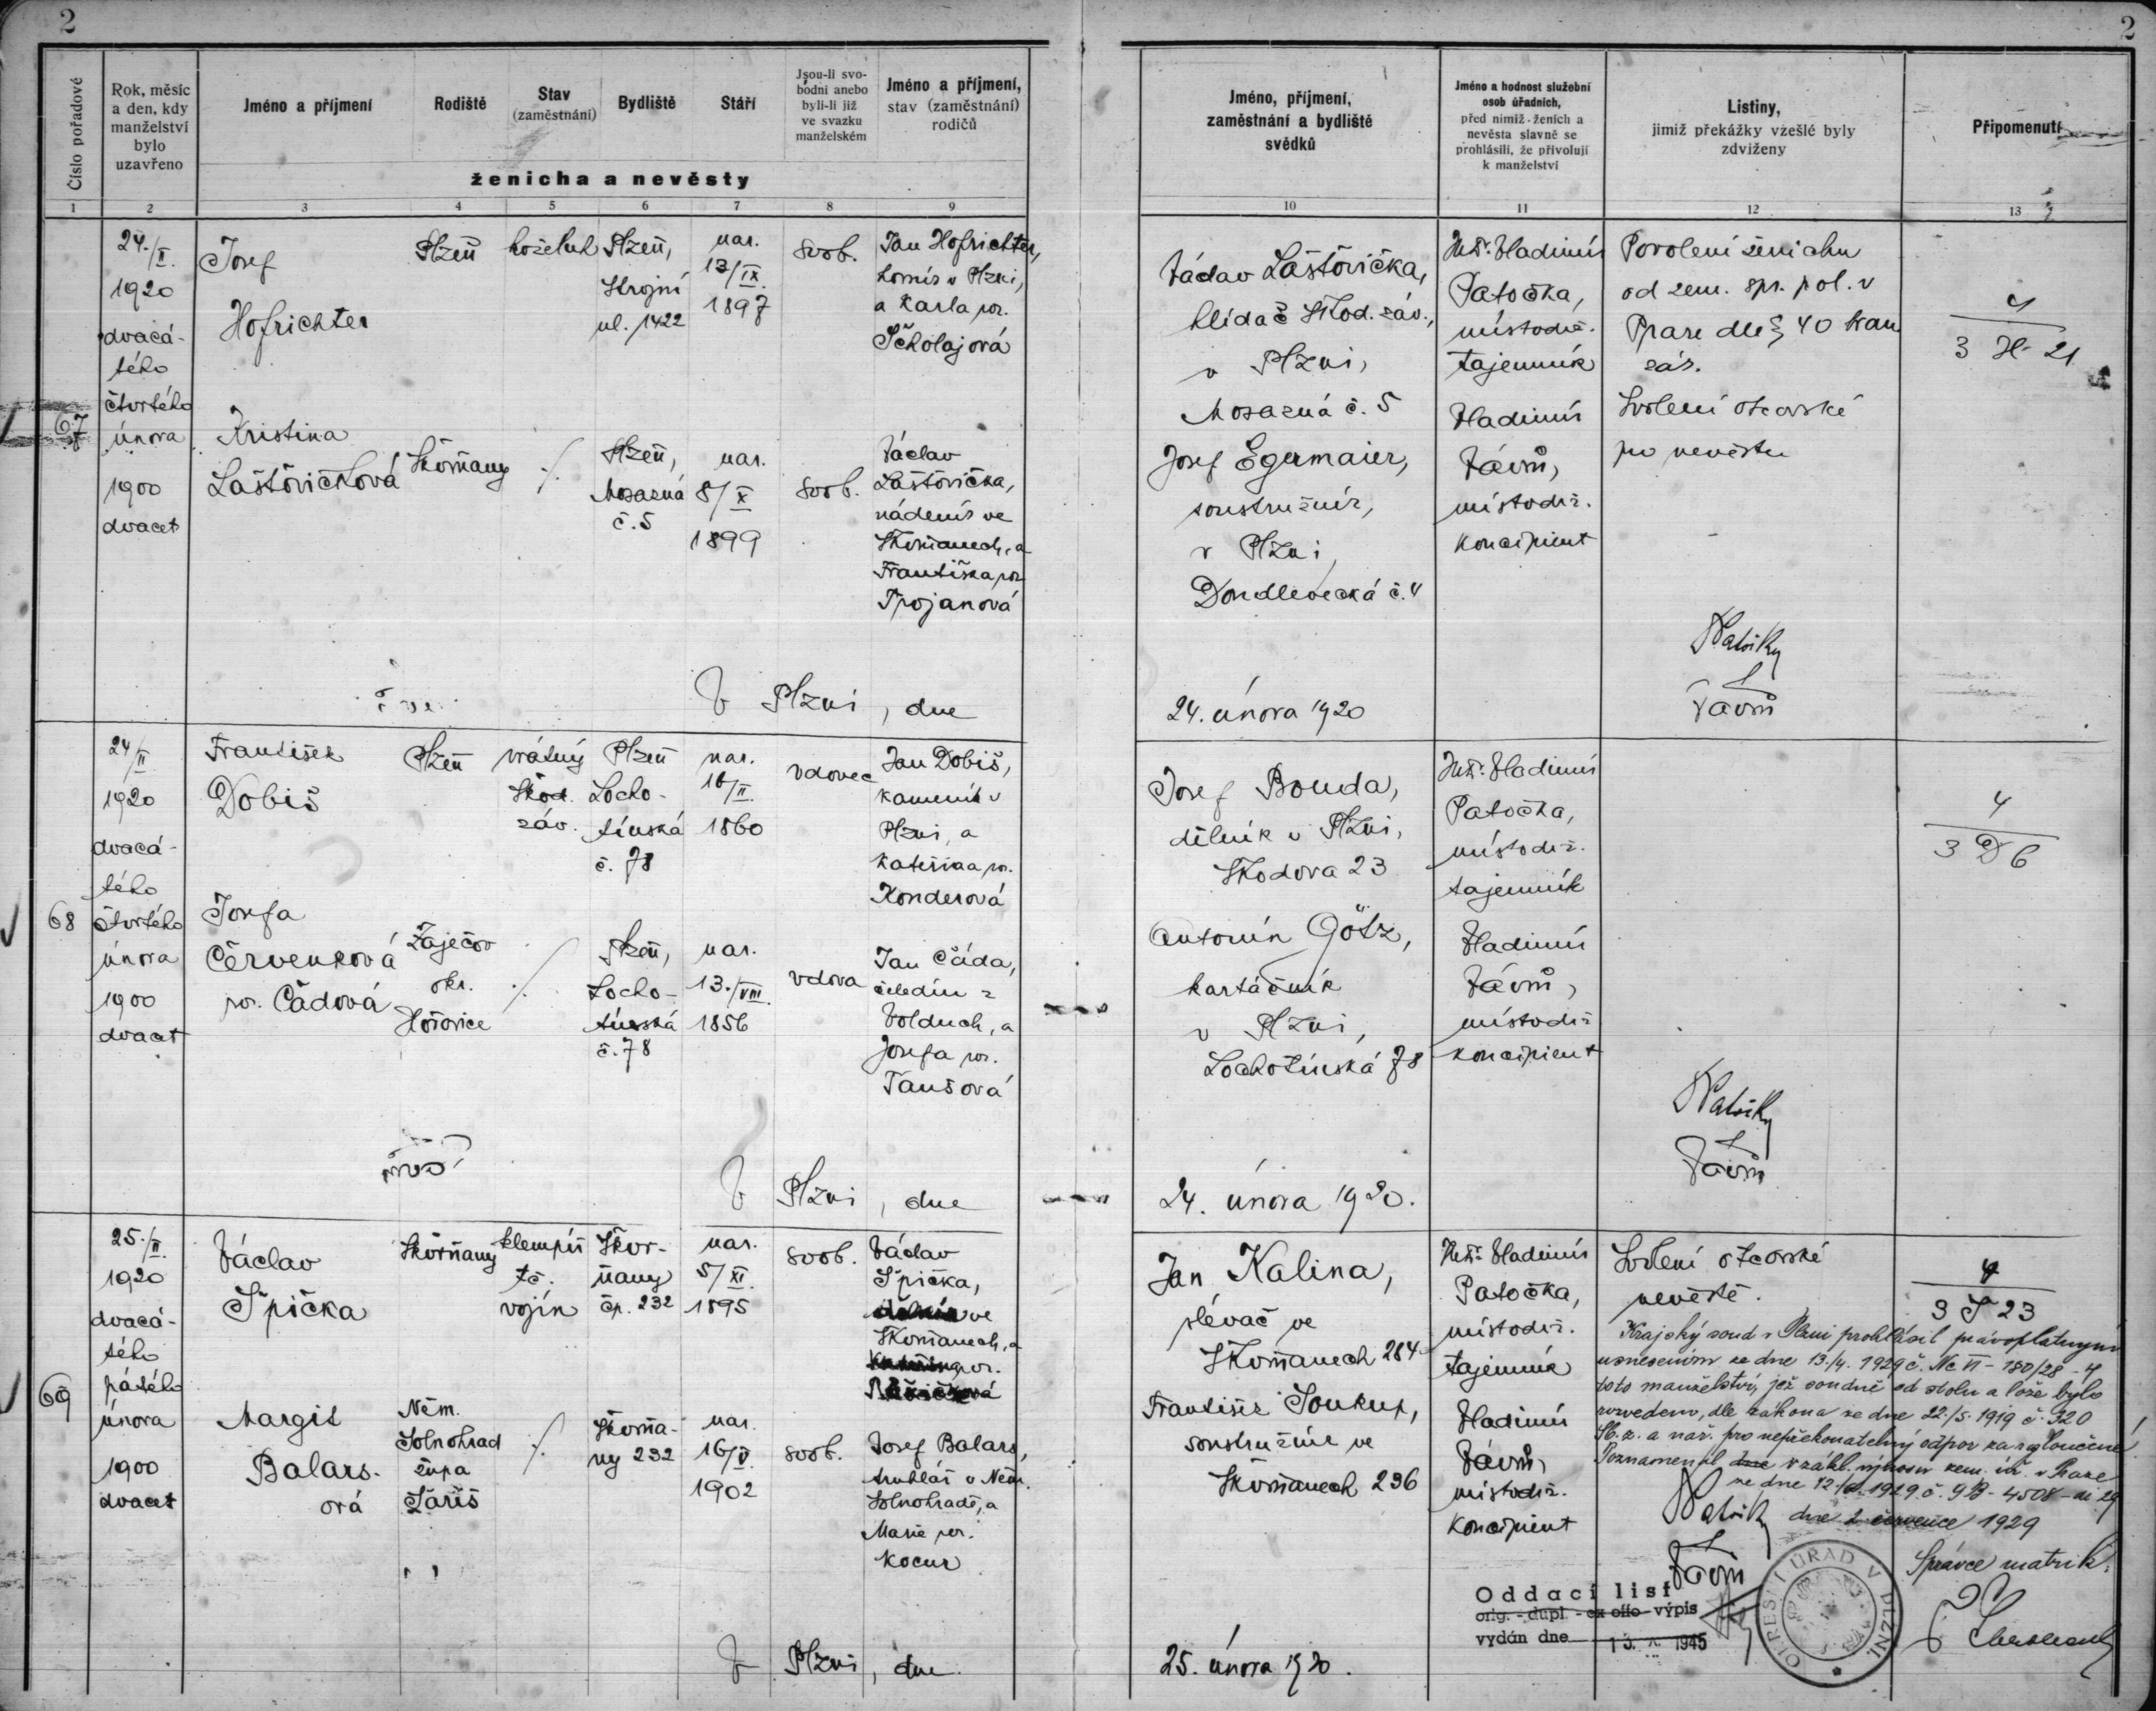 2
2
Číslo pořadové
Rok, měsíc
a den, kdy
manželství
bylo
uzavřeno
Jméno a příjmení
Rodiště
Stav
(zaměstnání)
Bydliště
Stáří
Jsou-li svo-
bodni anebo
byli-li již
ve svazku
manželském
Jméno a příjmení,
stav (zaměstnání)
rodičů
ženicha a nevěsty
Jméno, příjmení,
zaměstnání a bydliště
svědků
Jméno a hodnost služební
osob úřadních,
před nimiž ženich a
nevěsta slavně se
prohlásili, že přivolují
k manželství
Listiny,
jimiž překážky vzešlé byly
zdviženy
Připomenutí
1 2 3 4 5 6 7 8 9 10 11 12 13
67
24./II.
1920
dvacá-
tého
čtvrtého
února
1900
dvacet
Josef
Hofrichter
Plzeň
koželuh
Plzeň,
Strojní
ul. 1422
nar.
13/IX.
1897
svob.
Jan Hofrichter,
horník v Plzni,
a Karla roz.
Kristina
Laštovičková
Skvrňany
Plzeň,
Mosazná
č. 5
nar.
8/X
1899
svob.
Václav
Laštovička,
nádeník ve
Skvrňanech, a
Františka roz.
Trojanová
Václav Laštovička,
hlídač Škod. záv.,
v Plzni,
Mosazná č. 5
Josef Egermaier,
soustružník,
v Plzni,
Doudlevecká č. 4
JUDr. Vladimír
Patočka,
místodrž.
tajemník
Vladimír
Vávrů,
místodrž.
koncipient
Povolení ženichu
od zem. spr. pol. v
Praze dle § 40 bran.
zák.
Svolení otcovské
pro nevěstu
4
3 H 21
V Plzni, dne
24. února 1920
68
24/II
1920
dvacá-
tého
čtvrtého
února
1900
dvacet
František
Dobiš
Plzeň
vrátný
Škod.
záv.
Plzeň
Locho-
tínská
č. 78
nar.
16/II.
1860
vdovec
Jan Dobiš,
kameník v
Plzni, a
Kateřina roz.
Konderová
Josefa
Červenková
roz. Čádová
Zaječov
okr.
Hořovice
Plzeň,
Locho-
tínská
č. 78
nar.
13./VIII.
1856
vdova
Jan Čáda,
čeledín z
Volduch, a
Josefa roz.
Taušová
Josef Bouda,
dělník v Plzni,
Škodova 23
Antonín Götz,
kartáčník
v Plzni,
Lochotínská 78
JUDr. Vladimír
Patočka,
místodrž.
tajemník
Vladimír
Vávrů,
místodrž.
koncipient
4
3 D 6
V Plzni, dne
24. února 1920.
69
25./II.
1920
dvacá-
tého
pátého
února
1900
dvacet
Václav
Špička
Skvrňany
klempíř
t.č.
vojín
Skvr-
ňany
čp. 232
nar.
5/XI.
1895
svob.
Václav
Špička,
ve
Skvrňanech, a
roz.
Margit
Balars-
ová
Něm.
Solnohrad
župa
Šariš
Skvrňa-
ny 232
nar.
16/V.
1902
svob.
Josef Balars,
truhlář v Něm.
Solnohradě, a
Marie roz.
Kocur
Jan Kalina,
slévač ve
Skvrňanech 284
František Soukup,
soustružník ve
Skvrňanech 236
JUDr. Vladimír
Patočka,
místodrž.
tajemník
Vladimír
Vávrů,
místodrž.
koncipient
Svolení otcovské
nevěstě.
4
3 Š 23
Krajský soud v Plzni prohlásil právoplatným
usnesením ze dne 13./4. 1929 č. Nc VI - 180/28 - 4
toto manželství, jež soudně od stolu a lože bylo
rozvedeno, dle zákona ze dne 22./5. 1919 č. 320
Sb. z. a nař. pro nepřekonatelný odpor za rozloučené
Poznamenal v zákl. výnosu zem. úř. v Praze
dne 2. července 1929
Správce matrik:
Oddací list
orig. - dupl. - ex offo - výpis
vydán dne 1945
OKRESNÍ ÚŘAD V PLZNI.
V Plzni, dne
25. února 1920.